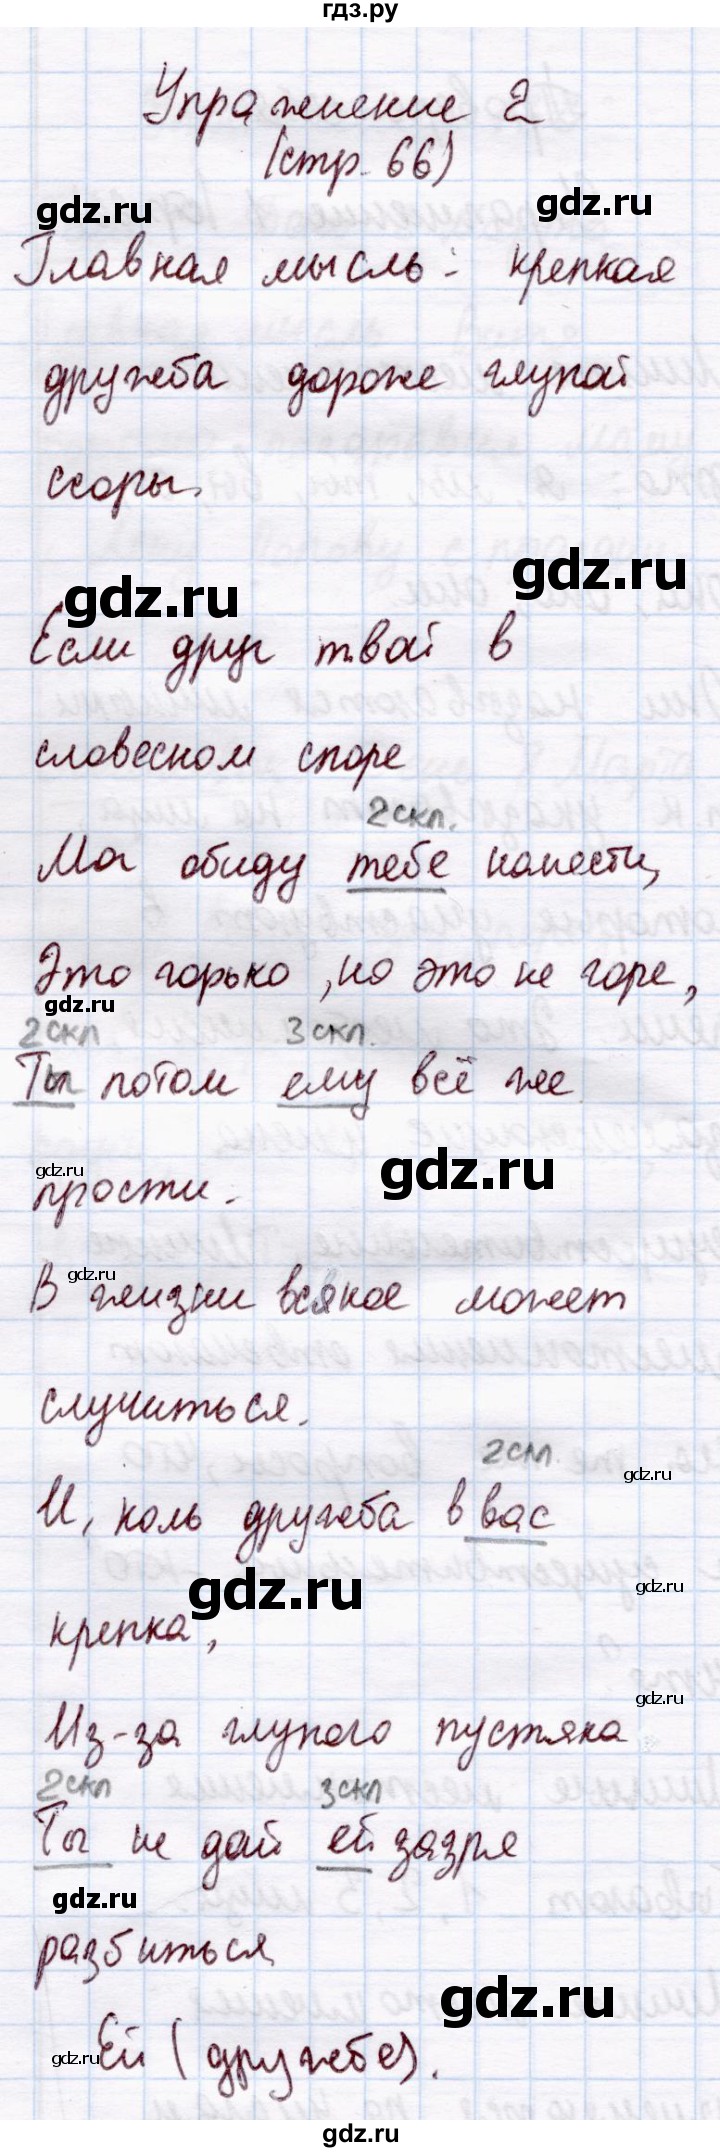 гдз.ру
Упражнение 2
(стр. 66)
gdz.ru
gdz.ru
Главная мысль: крепкая
дружба дороже глупой
ссоры.
gdz.ru
gdz.ru
Если друг твой в
словесном споре
2скл.
Мог обиду тебе нанести,
Это горько, но это не горе,
gdz.ru
2скл. 3скл.
Ты потом ему всё же
gdz.ru
gdz.ru
прости.
gdz.ru
В жизни всякое может
случиться.
2скл.
gdz.ru
И, коль дружба в вас
gdz.ru
gdz.ru
крепка,
gdz.ru
Из-за глупого пустяка
2скл 3скл
Ты не дай ей зазря
gdz.ru
разбиться
gdz.ru
gdz.ru
Ей (дружбе).
gdz.ru